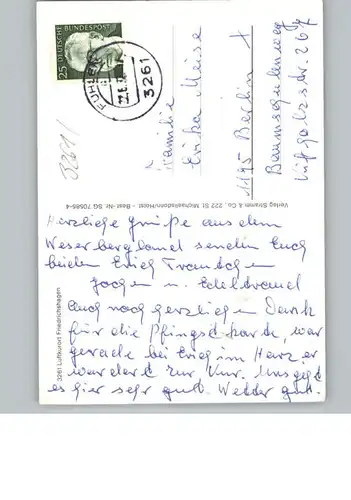 DEUTSCHE BUNDESPOST
25
FUHLEN
3261
3261
Familie
Erika Meise
1195 Berlin
Baumschulenweg
267
Verlag Stramm & Co., 222 St. Michaelisdonn/Holst. - Best.-Nr. SG 70585-4
3261 Luftkurort Friedrichshagen
Herzliche Grüße aus dem
Weserbergland senden Euch
beiden Erich Trautchen
Jochen u. Edeltraud
Euch noch herzlichen Dank
für die Pfingstkarte, war
gerade bei Erich im Harz, er
war dort zur Kur. Uns geht
es hier sehr gut. Wetter gut.